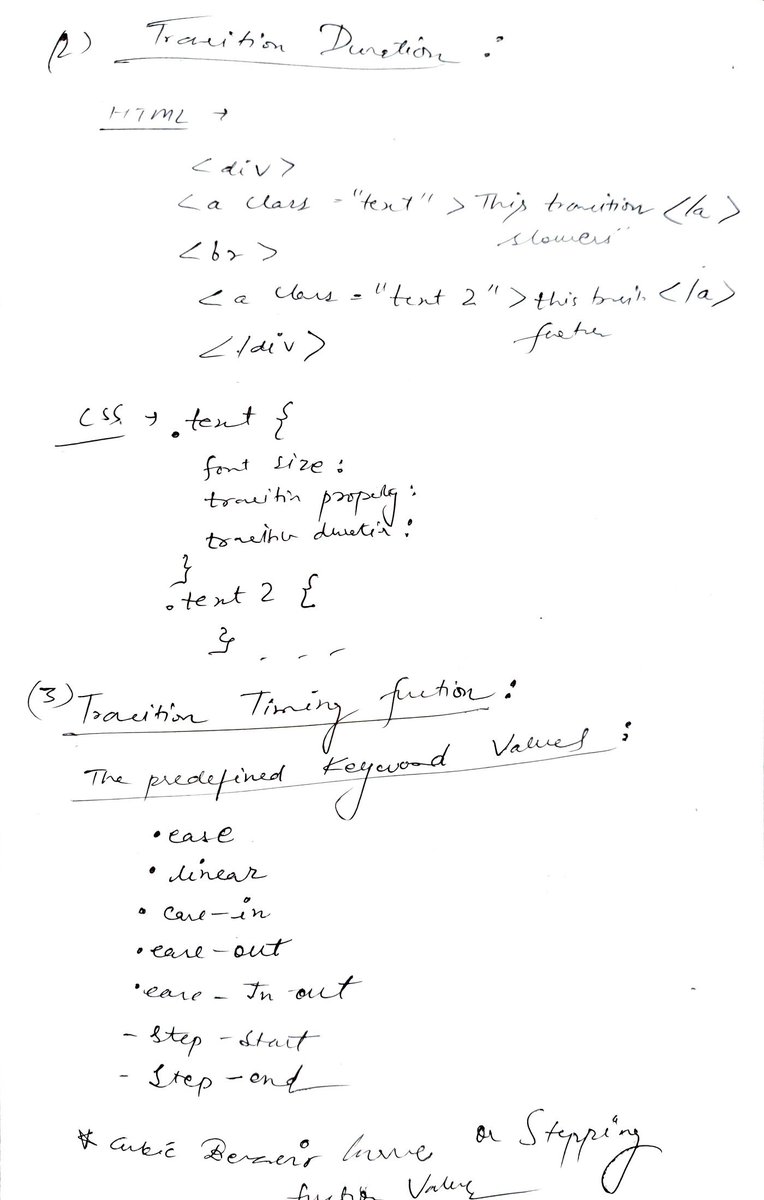 (2) Transition Duration :
HTML →
<div>
<a class = "text" > This transition </a>
slowers
<br>
<a class = "text 2" > this </a>
</div>
CSS → .text {
font size :
transition property :
transition duration :
}
.text 2 {
} - - -
(3) Transition Timing function :
The predefined Keyword Values :
• ease
• linear
• ease-in
• ease-out
• ease-In out
- Step-Start
- Step-end
* Cubic Bezzeir Curve or Stepping
function Value